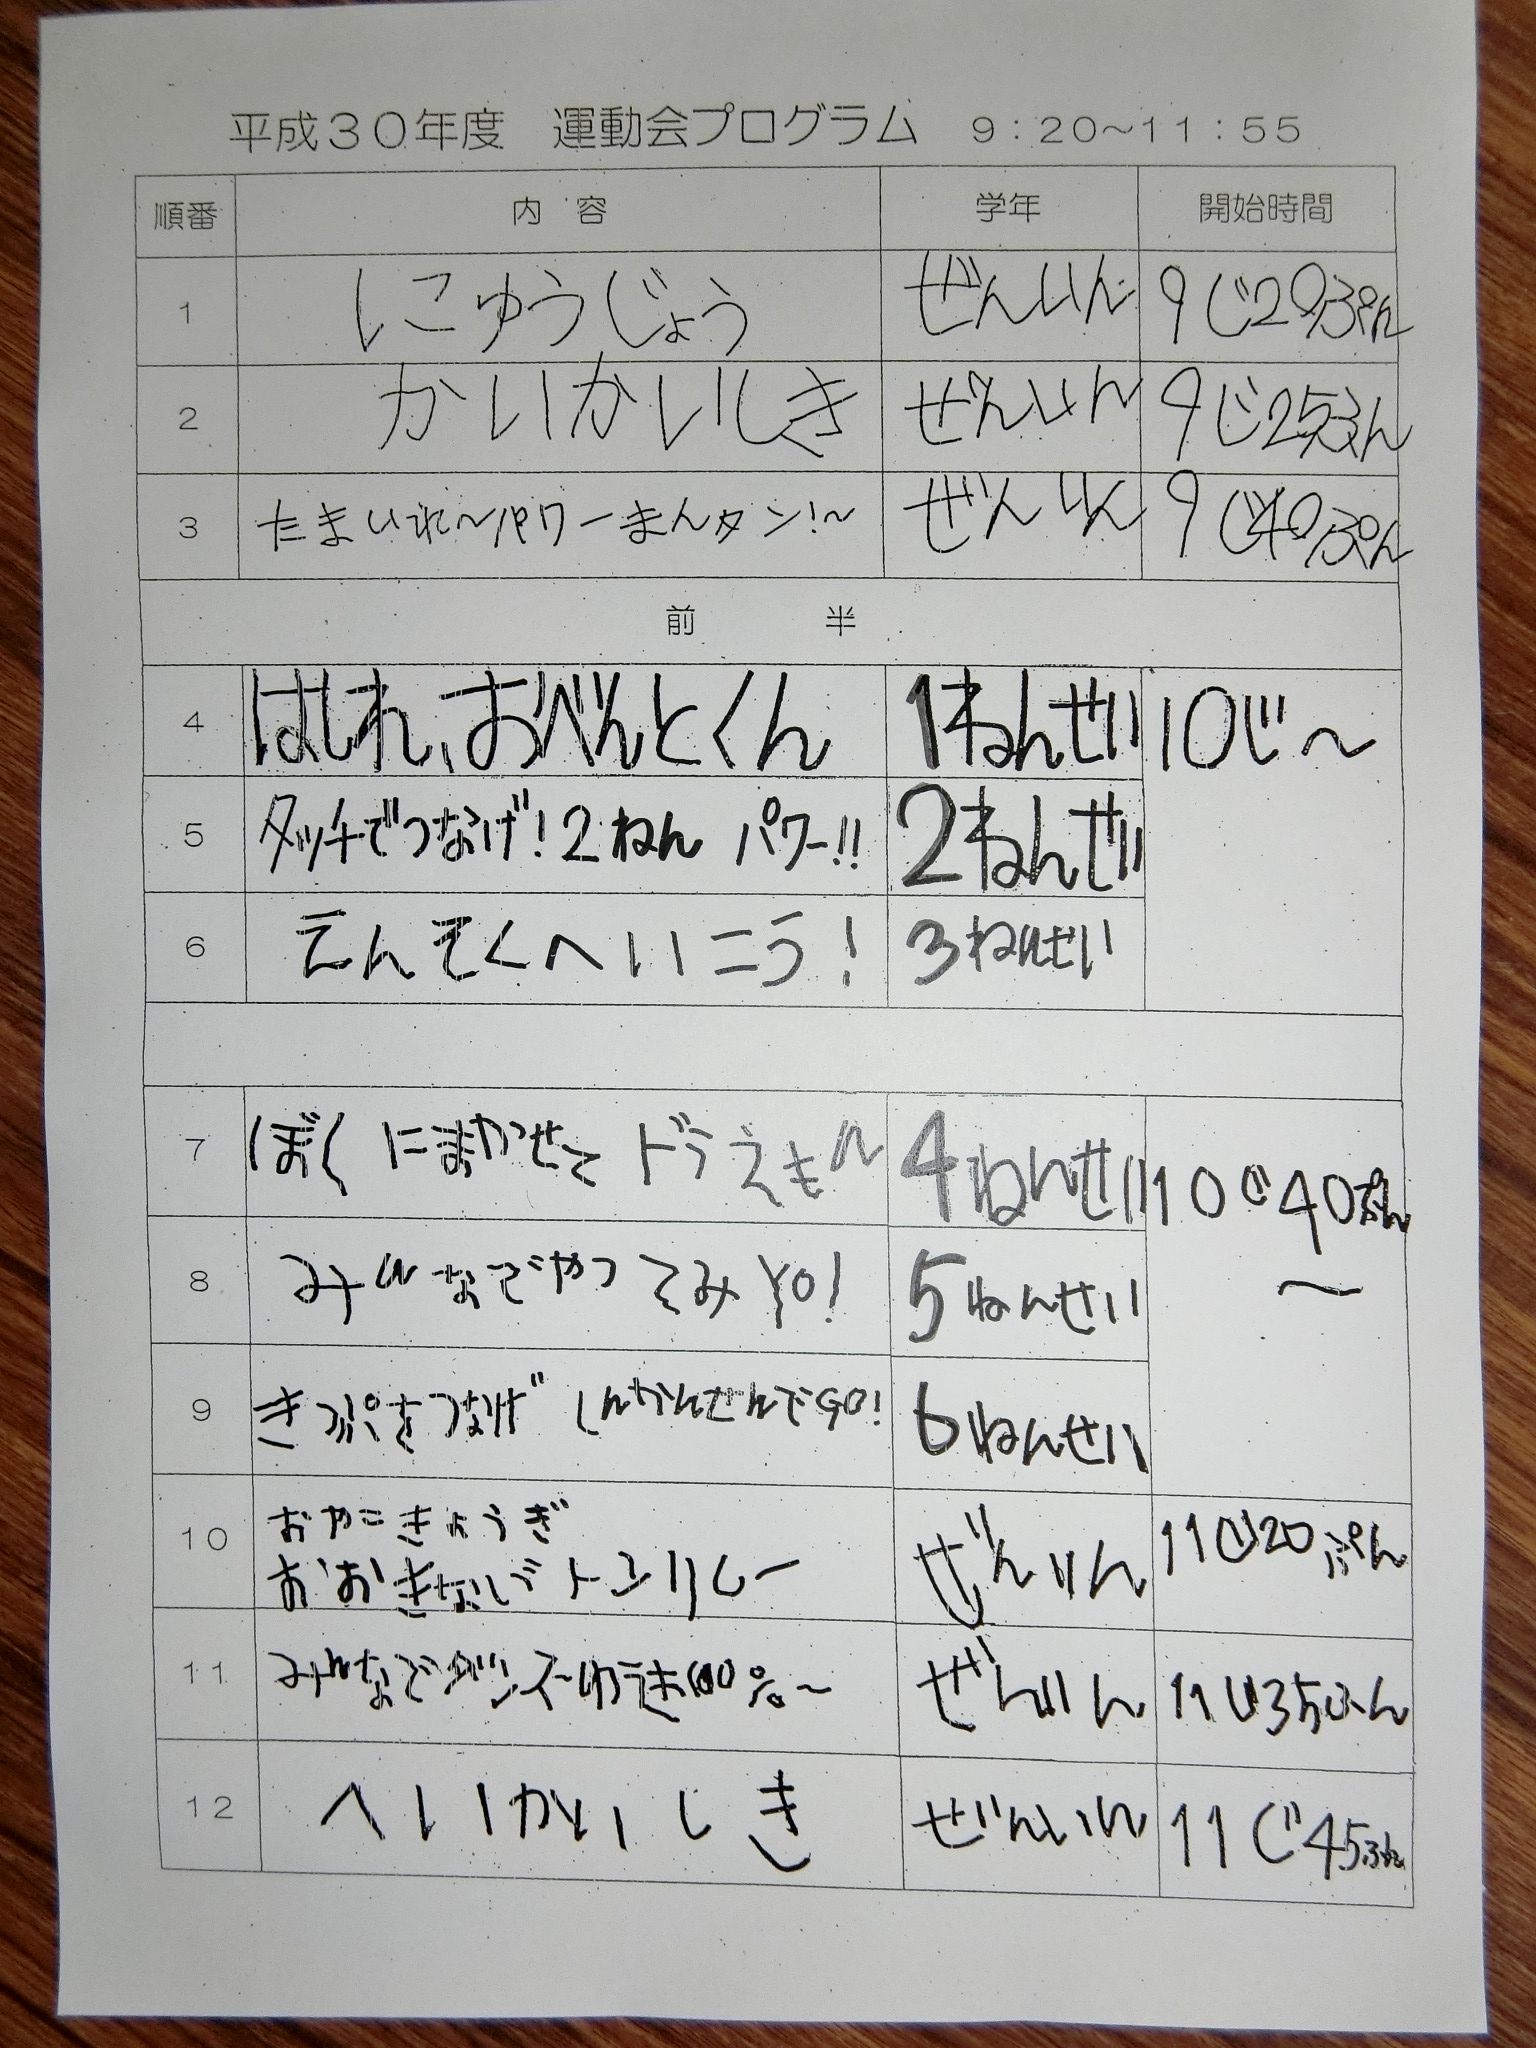 平成30年度 運動会プログラム 9:20~11:55
順番 内容 学年 開始時間
1 にこゅうじょう ぜんいん 9じ20ぷん
2 かいかいしき ぜんいん 9じ25ふん
3 たまいれ~パワーまんタン!~ ぜんいん 9じ40ぷん
前半
4 はしれ、おべんとくん 1ねんせい 10じ~
5 タッチでつなげ!2ねん パワー!! 2ねんせい
6 えんそくへいこう! 3ねんせい
7 ぼくにまかせて ドラえもん 4ねんせい 10じ40ぷん
~
8 みんなでやってみYO! 5ねんせい
9 きっぷをつなげ しんかんせんでGO! 6ねんせい
10 おやこきょうぎ
おおきなバトンリレー ぜんいん 11じ20ぷん
11 みんなでダンス~ゆうき100%~ ぜんいん 11じ35ふん
12 へいかいしき ぜんいん 11じ45ふん